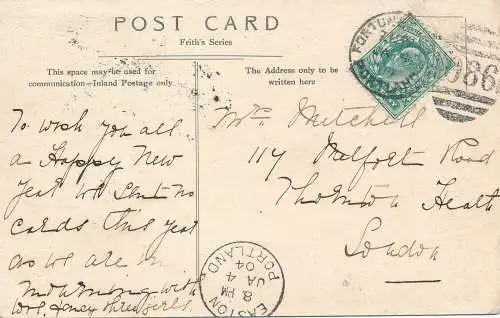 POST CARD
Frith's Series
This space may be used for
communication—Inland Postage only.
The Address only to be
written here
FORTUN
PORTLAND
986
To wish you all
a Happy New
Year we sent no
cards this year
as we are in
mourning with
love three girls
Mrs Mitchell
117 Melfort Road
Thornton Heath
London
EASTON
PORTLAND
8 PM
JA 4
04